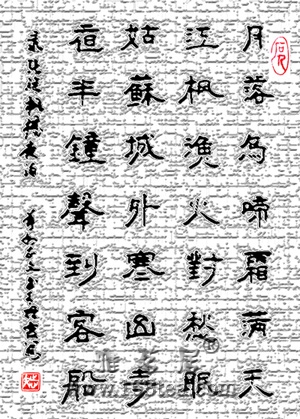 月落烏啼霜滿天
江枫漁火對愁眠
姑蘇城外寒山寺
亱半鐘聲到客船
录張继楓橋夜泊